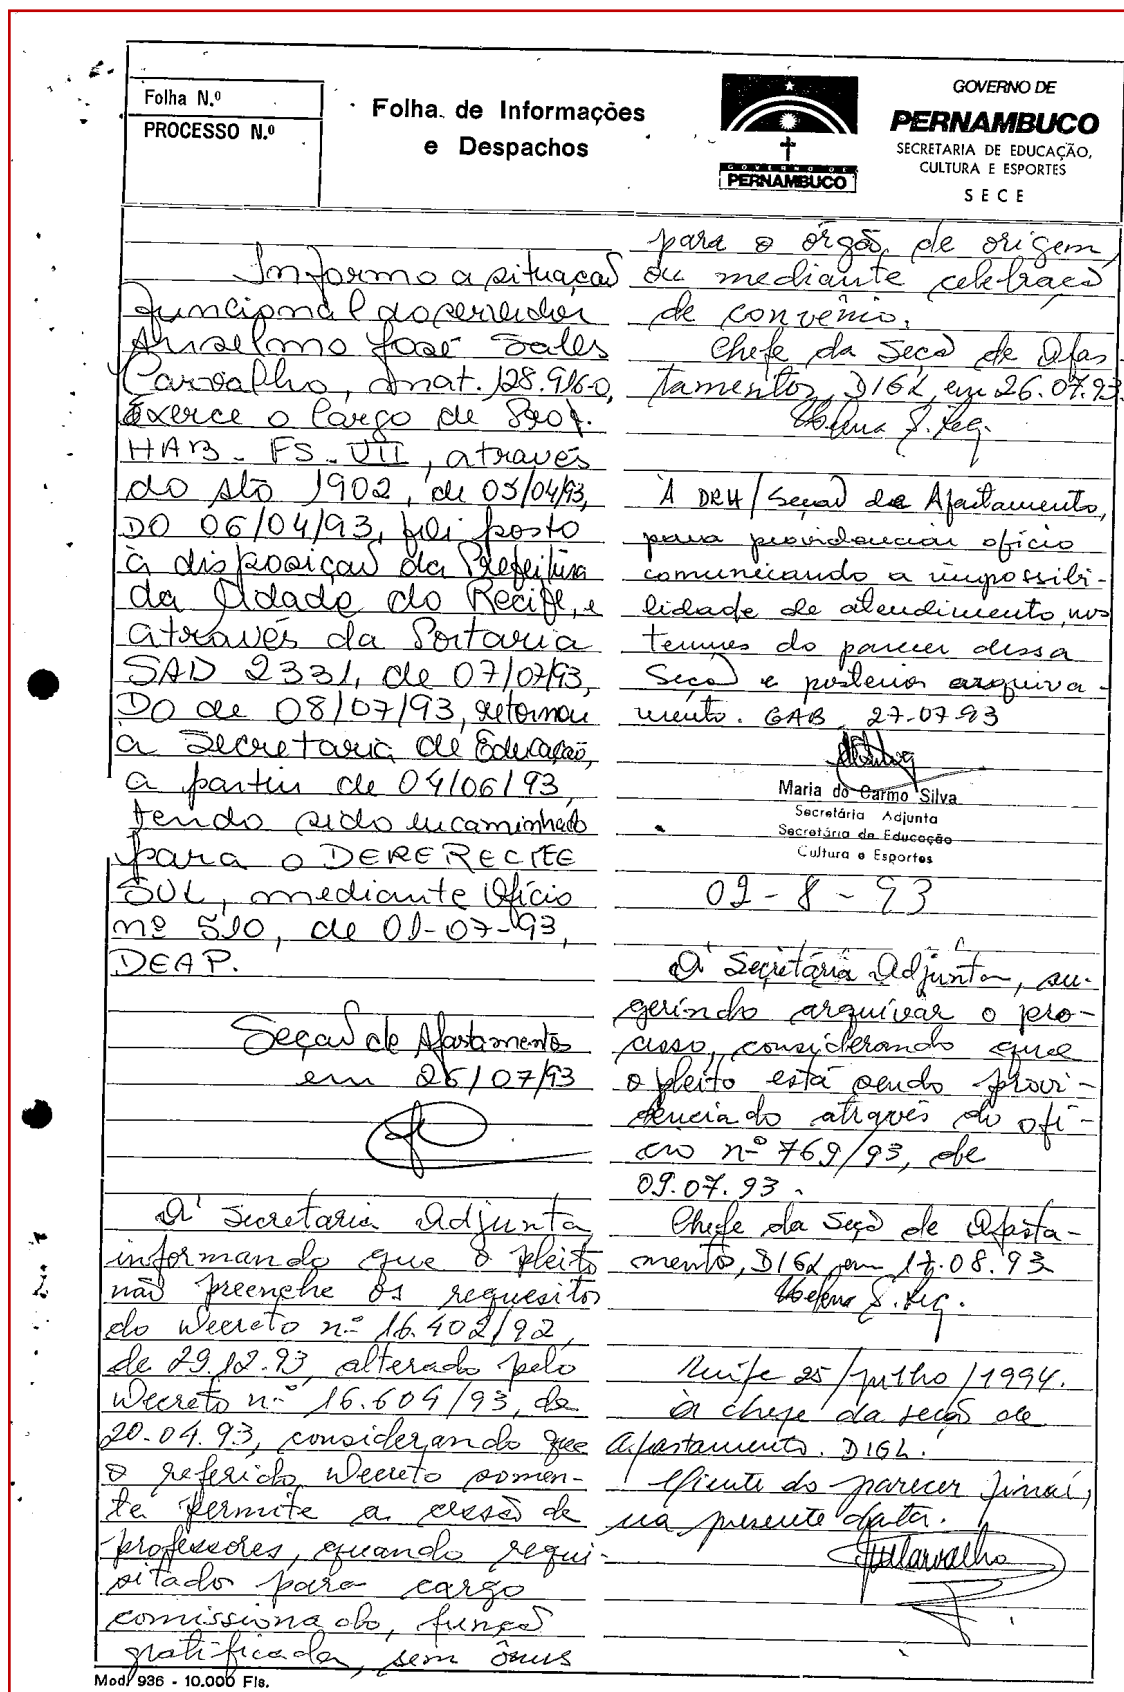 Folha N.º
PROCESSO N.º
Folha de Informações
e Despachos
GOVERNO DE
PERNAMBUCO
GOVERNO DE
PERNAMBUCO
SECRETARIA DE EDUCAÇÃO,
CULTURA E ESPORTES
SECE
Informo a situação
funcional do servidor
Anselmo José Sales
Carvalho, mat. 128.916-0,
exerce o Cargo de Prof.
HAB - FS - VII, através
do Ato 1902, de 05/04/93,
DO 06/04/93, foi posto
à disposição da Prefeitura
da Cidade do Recife, e
através da Portaria
SAD 2331, de 07/07/93,
DO de 08/07/93, retornou
a Secretaria de Educação,
a partir de 04/06/93,
tendo sido encaminhado
para o DERE RECIFE
SUL, mediante Ofício
nº 510, de 01-07-93,
DEAP.
Seção de Afastamentos
em 26/07/93
À Secretaria Adjunta,
informando que o pleito
não preenche os requesitos
do Decreto nº 16.402/92,
de 29.12.93, alterado pelo
Decreto nº 16.604/93, de
20.04.93, considerando que
o referido Decreto somen-
te permite a cessão de
professores, quando requi-
sitado para cargo
comissionado, função
gratificada, sem ônus
para o órgão de origem,
ou mediante celebração
de convênio.
Chefe da Seção de Afas-
tamentos, DIGL, em 26.07.93.
À DRH/Seção de Afastamento,
para providenciar ofício
comunicando a impossibi-
lidade de atendimento, nos
termos do parecer dessa
Seção e posterior arquiva-
mento. GAB 27-07-93
Maria do Carmo Silva
Secretária Adjunta
Secretária de Educação
Cultura e Esportes
02-8-93
À Secretária Adjunta, su-
gerindo arquivar o pro-
cesso, considerando que
o pleito está sendo provi-
denciado através do ofí-
cio nº 769/93, de
09.07.93.
Chefe da Seção de Afasta-
mento, DIGL em 17.08.93
Recife 25/julho/1994.
à chefe da seção de
Afastamento. DIGL.
Ciente do parecer final,
na presente data.
Mod. 936 - 10.000 Fls.